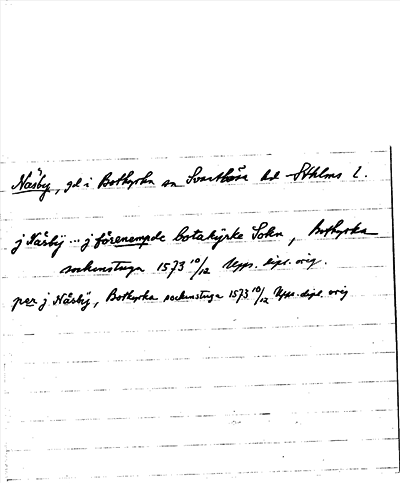 Näsby, gd i Botkyrka sn Svartlösa hd Sthlms l.
j Näsbÿ ... j förenempde botakÿrke Sokn, Botkyrka
sockenstuga 1573 10/12 Upps. dipl. orig.
per j Nåsbÿ, Botkyrka sockenstuga 1573 10/12 Upps. dipl. orig